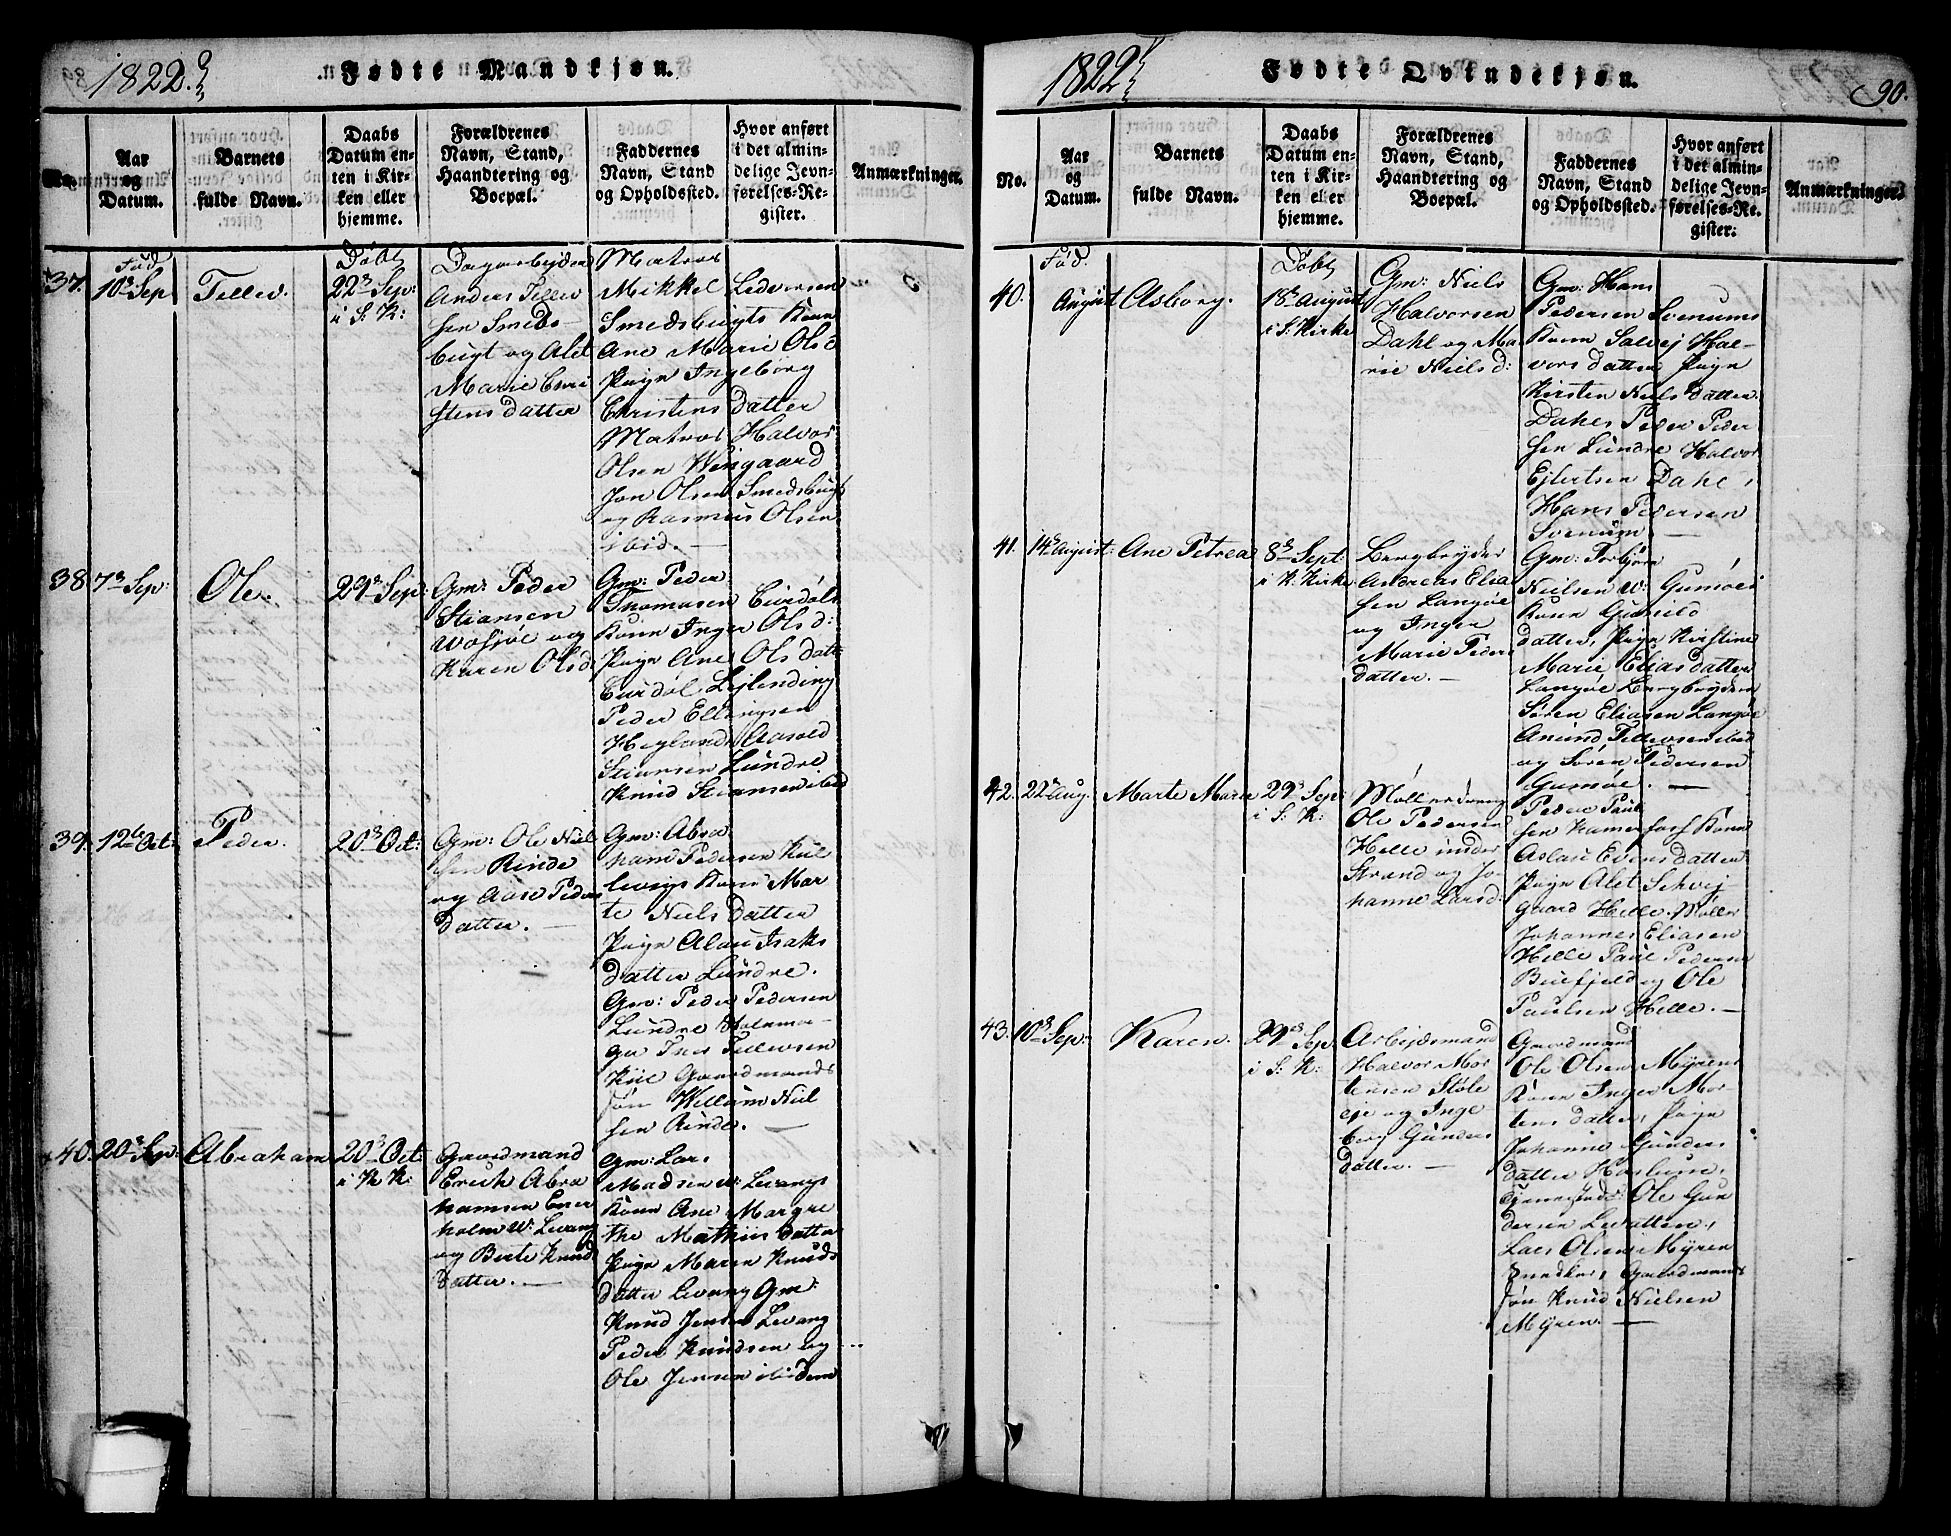 1822.
Fødte Mandkjøn.
No.
Aar og Datum.
Barnets fulde Navn.
Daabs Datum enten i Kirken eller hjemme.
Forældrenes Navn, Stand, Haandtering og Boepæl.
Faddernes Navn, Stand og Opholdssted.
Hvor anført i det almindelige Jevnførelses-Register.
Anmærkninger.
37.
Fød
10de Sep
Tellev.
Døbt
22de Sep:
i S: K:
Dagarbejder
Anders Tellev
sen Smeds
bugt og Alet
Marie Chri
stensdatter
Matros
Mikkel Ledvorsen
Smedsbugts Kone
Ane Marie Olsd
Pign Ingeborg
Christens Datter
Matros Halvor
Olsen Wiisgaard
Jon Olsen Smedsbugt
og Rasmus Olsen
ibid. —
38
7de Sep:
Ole.
29de Sep:
Gm: Peder
Stiansen
Wosjøe og
Karen Olsd:
Gm: Peder
Thomasen Burdøls
Kone Inger Olsd:
Pign Ane Olsdatt
Burdøl Lejlending
Peder Ellingsen
Heglands Aasold
Stiansen Lundre
Knud Stiansen ibid
39.
12te Oct:
Peder.
20de Oct:
Gm: Ole Niel
sen Rinde
og Aase Peders
datter. —
Gm: Abra
ham Pedersen Kiil
levegs Kone Mar
te Niels Datter
Pign Alau Isaks
datter Lundre.
Gm: Peder Pedersen
Lundre
Tellevsen
Kiil Gaardmands
søn Willum Niel
sen Rinde. —
40.
20de Sep:
Abraham
20de Oct:
i K K:
Gaardmand
Erich Abra
hamsen Ener
holm W: Levang
og Berte Knuds
datter. —
Gm: Lars
Madsen W: Levangs
Kone Ane Margre
the Mathiis datter
Pign Maren Knuds
datter Levang Gm:
Knud Jensen Levang
Peder Knudsen og
Ole Jensen ibidem
1822
Fødte Qvindekjøn.
90.
No.
Aar og Datum.
Barnets fulde Navn.
Daabs Datum enten i Kirken eller hjemme.
Forældrenes Navn, Stand, Haandtering og Boepæl.
Faddernes Navn, Stand og Opholdssted.
Hvor anført i det almindelige Jevnførelses-Register.
Anmærkninger.
40.
Fød.
August
Asborg.
Døbt
18de August
i S: Kirke
Gm: Niels
Halvorsen
Dahl og Ma
rie Nielsd:
Gm: Hans
Pedersen Svenums
Kone Salvej Hal-
vorsdatter Pign
Kirsten Niels datter
Dahl, Peder Peder
sen Lundre Halvor
Ejlertsen Dahl,
Hans Pedersen
Svenum —
41.
14de August:
Ane Petrea
8de Sept
i K: Kirke
Bergbryder
Andreas Elia
sen Langøe
og Inger
Marie Peders
datter. —
Gm: Torbjørn
Nielsen W: Gumøes
Kone Gunild
datter, Pign Kirstine
Marie Elias datter
Langøe Bergbryder
Søren Eliasen Langøe
Anund Tellevsen ibid
og Søren Pedersen
Gumøe. —
42.
22de Aug.
Marte Marie
29de Sep:
i S: K:
Møllerdreng
Ole Pedersen
Helle under
Strand og Jo
hanne Larsd:
Peder Paul
sen Kamerfoss Kone
Aslau Evens datter
Pign Alet Schvej
gaard Helle. Møller
Johannes Eliasen
Helle Paul Pedersen
Buefjeld og Ole
Paulsen Helle. —
43.
10de Sep:
Karen.
29de Sep
i S: K:
Arbejdsmand
Halvor Mor
tensen Støle
eje og Inge
borg Gunders
datter. —
Gaardmand
Ole Olsen Myrens
Kone Inger Mor
tens datter, Pign
Johanne Gunders
datter
Ole Gun
dersen
Lars Olsen Myren
Gaardmands
søn Knud Nielsen
Myren. —